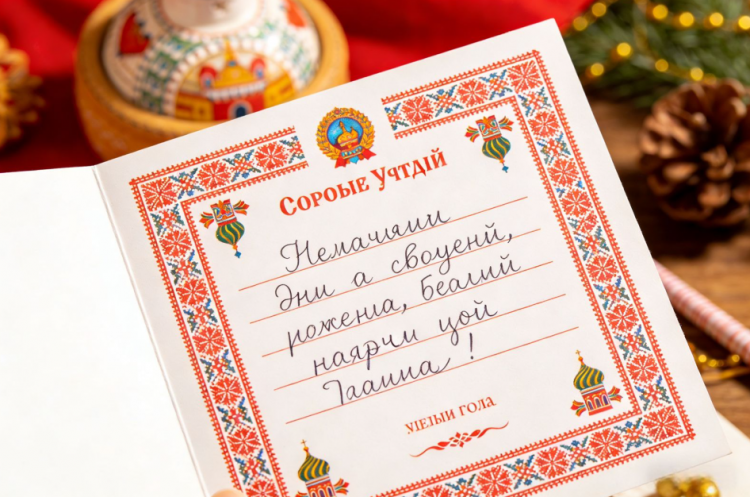 Сороые Учтдій
Немачияни
Эни а своуений,
рожения, беалий
наярчи цой
Таанна!
Уіеіыи гола